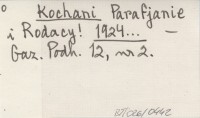 Kochani Parafjanie
i Rodacy! 1924... —
Gaz. Podh. 12, nr 2.